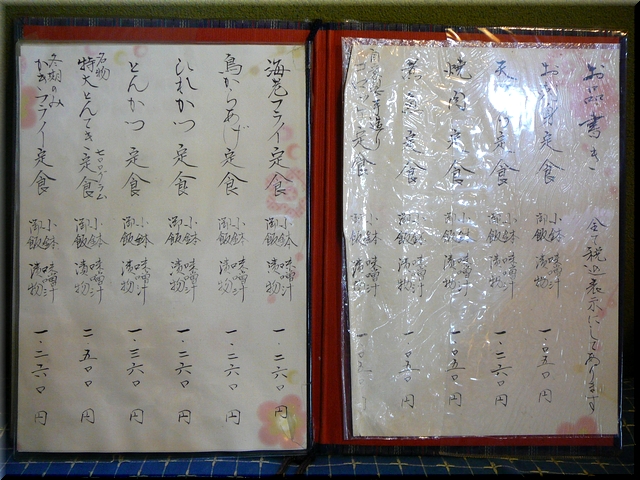 お品書き 全て税込表示にしてあります
定食 小鉢 御飯 味噌汁 漬物 一、〇五〇円
定食 小鉢 御飯 味噌汁 漬物 一、〇五〇円
焼肉定食 小鉢 御飯 味噌汁 漬物 一、〇五〇円
定食 小鉢 御飯 味噌汁 漬物 一、〇五〇円
定食 小鉢 御飯 味噌汁 漬物
海老フライ定食 小鉢 御飯 味噌汁 漬物 一、二六〇円
鳥からあげ定食 小鉢 御飯 味噌汁 漬物 一、二六〇円
ひれかつ定食 小鉢 御飯 味噌汁 漬物 一、二六〇円
とんかつ定食 小鉢 御飯 味噌汁 漬物 一、三六〇円
名物 特大とんてき定食 七〇〇グラム 小鉢 御飯 味噌汁 漬物 二、五〇〇円
冬期のみ かきフライ定食 小鉢 御飯 味噌汁 漬物 一、二六〇円